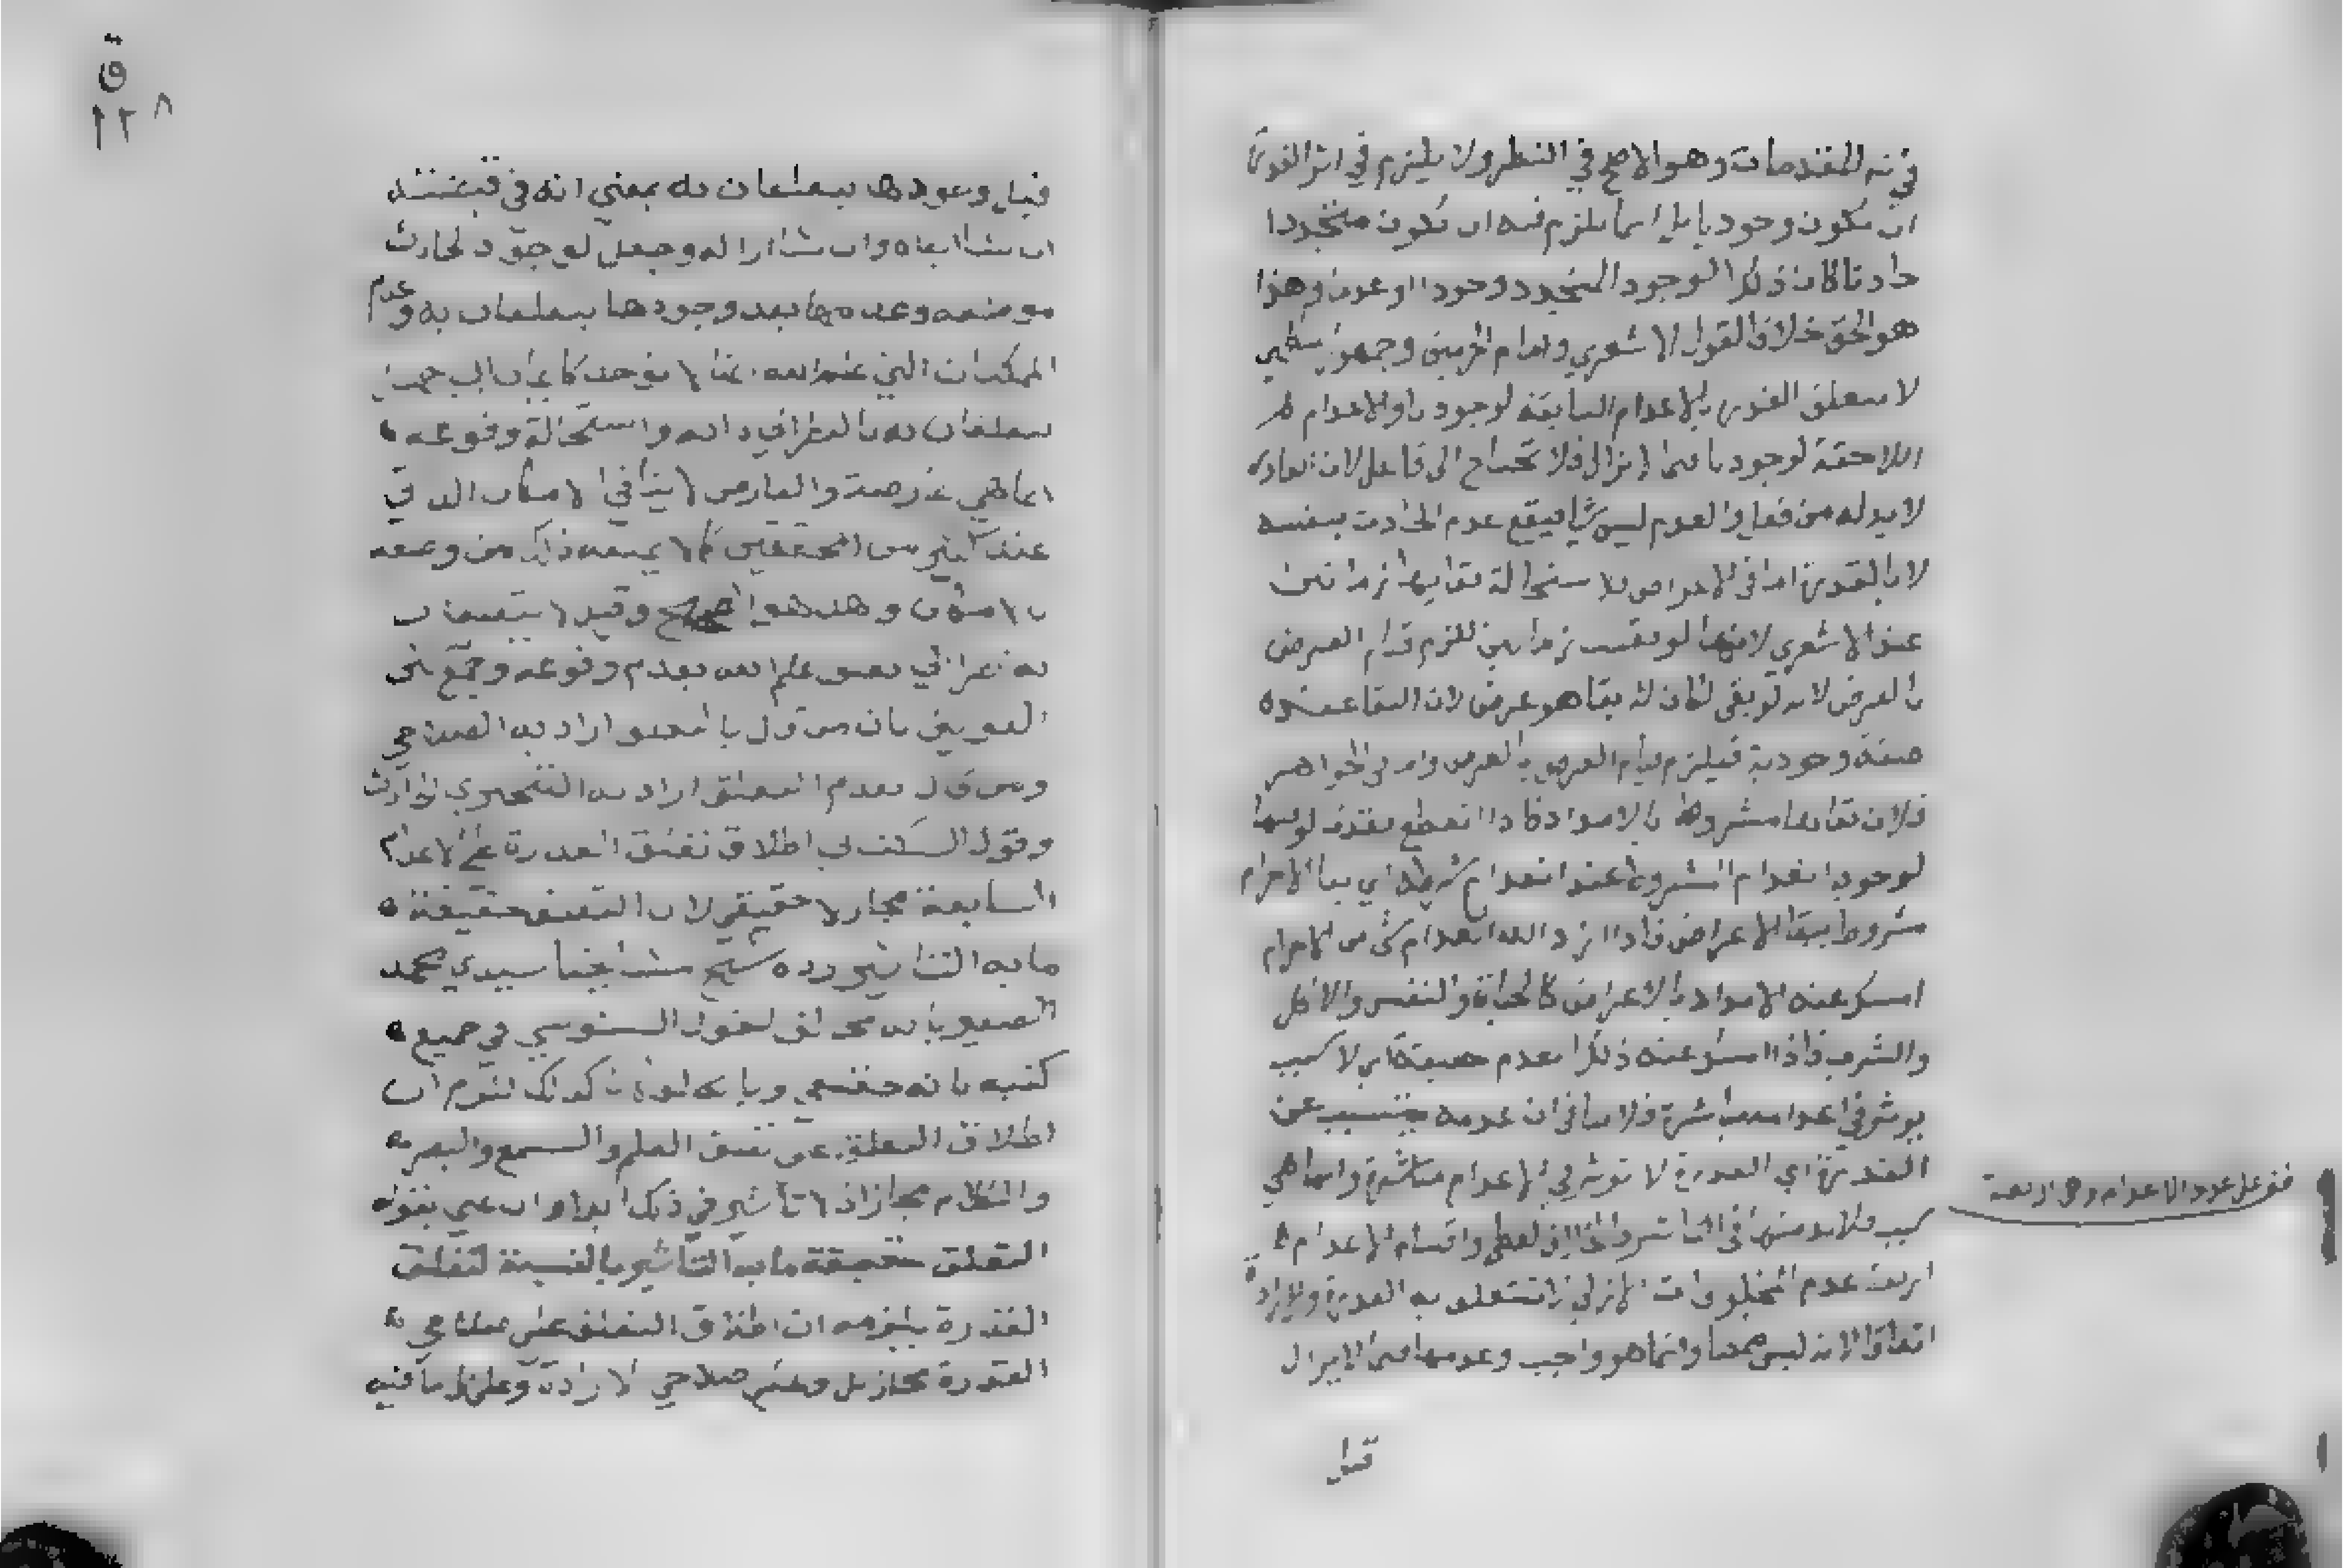 في المقدمات وهو الاصح في النظر ولا يلزم في اثر القدرة
ان يكون وجوديا بل انما يلزم فيه ان يكون متجددا
حادثا كان ذلك الوجود المتجدد وجودا او عدما وهذا
هو الحق خلافا لقول الاشعري وامام الحرمين وجمهور
لا تتعلق القدرة بالاعدام السابقة لوجودنا والاعدام
اللاحقة لوجودنا فيما لا يزال فلا تحتاج الى فاعل لان
لا بد له من فعل والعدم ليس شيا فيقع عدم الحادث بنفسه
لا بالقدرة اما في الاعراض فلاستحالة بقايها زمانين
عند الاشعري لانها لو بقيت زمانين للزم قيام العرض
بالعرض لانه لو بقي لكان له بقا هو عرض لان البقا عنده
صفة وجودية فيلزم قيام العرض بالعرض واما في الجواهر
فلان بقاءها مشروط بالامداد فاذا انقطع
لوجوب انعدام المشروط عند انعدام شرطه اي بقا الاجرام
مشروط ببقا الاعراض فاذا اراد الله انعدام شي من الاجرام
امسك عنه الامداد بالاعراض كالحياة والنفس والاكل
والشرب فاذا امسك عنه ذلك انعدم اي لا سبب
يوثر في اعدامه مباشرة فلا ينافي ان عدمه متسبب عن
القدرة اي القدرة لا توثر في الاعدام مباشرة وانما هي
سبب فلا بد منها في واقسام الاعدام
اربعة عدم المخلوقات الازلي لا تتعلق به القدرة والارادة
اتفاقا لانه ليس ممكنا وانما هو واجب وعدمها فيما لا يزال
قبل
قف على عدد الاعدام وهي اربعة
ق
١٢٨
قبل وجودها يتعلقان به بمعنى انه في قبضته
ان شا ابقاه وان شا ازاله وجعل لوجود الحادث
موضعه وعدمها بعد وجودها يتعلقان به وعدم
الممكنات التي علم الله انها لا توجد كايمان ابي جهل
يتعلقان به بالنظر الى ذاته واستحالة وقوعه
انما هي عارضة والعارض لا ينافي الامكان الذاتي
عند كثير من المحققين كما لا يمنعه ذلك من وصفه
بالامكان وهذا هو الصحيح وقيل لا يتعلقان
به نظرا الى تعلق علم الله بعدم وقوعه وجمع بين
القولين بان من قال بالتعلق اراد به الصلاحي
ومن قال بعدم التعلق اراد به التنجيزي الحادث
وقول السكتاني اطلاق تعلق القدرة على الاعدام
السابقة مجاز لا حقيقي لان التعلق حقيقة
ما به التاثير رده شيخ مشايخنا سيدي محمد
الصغير بانه مخالف لقول السنوسي في جميع
كتبه بانه حقيقي وبانه لو كان كذلك للزم ان
اطلاق التعلق على تعلق العلم والسمع والبصر
والكلام مجاز اذ لا تاثير في ذلك ابدا وان عني بقوله
التعلق حقيقة ما به التاثير بالنسبة لتعلق
القدرة يلزمه ان اطلاق التعلق على صلاحي
القدرة مجاز بل وعلى صلاحي الارادة وعلى كل ما فيه